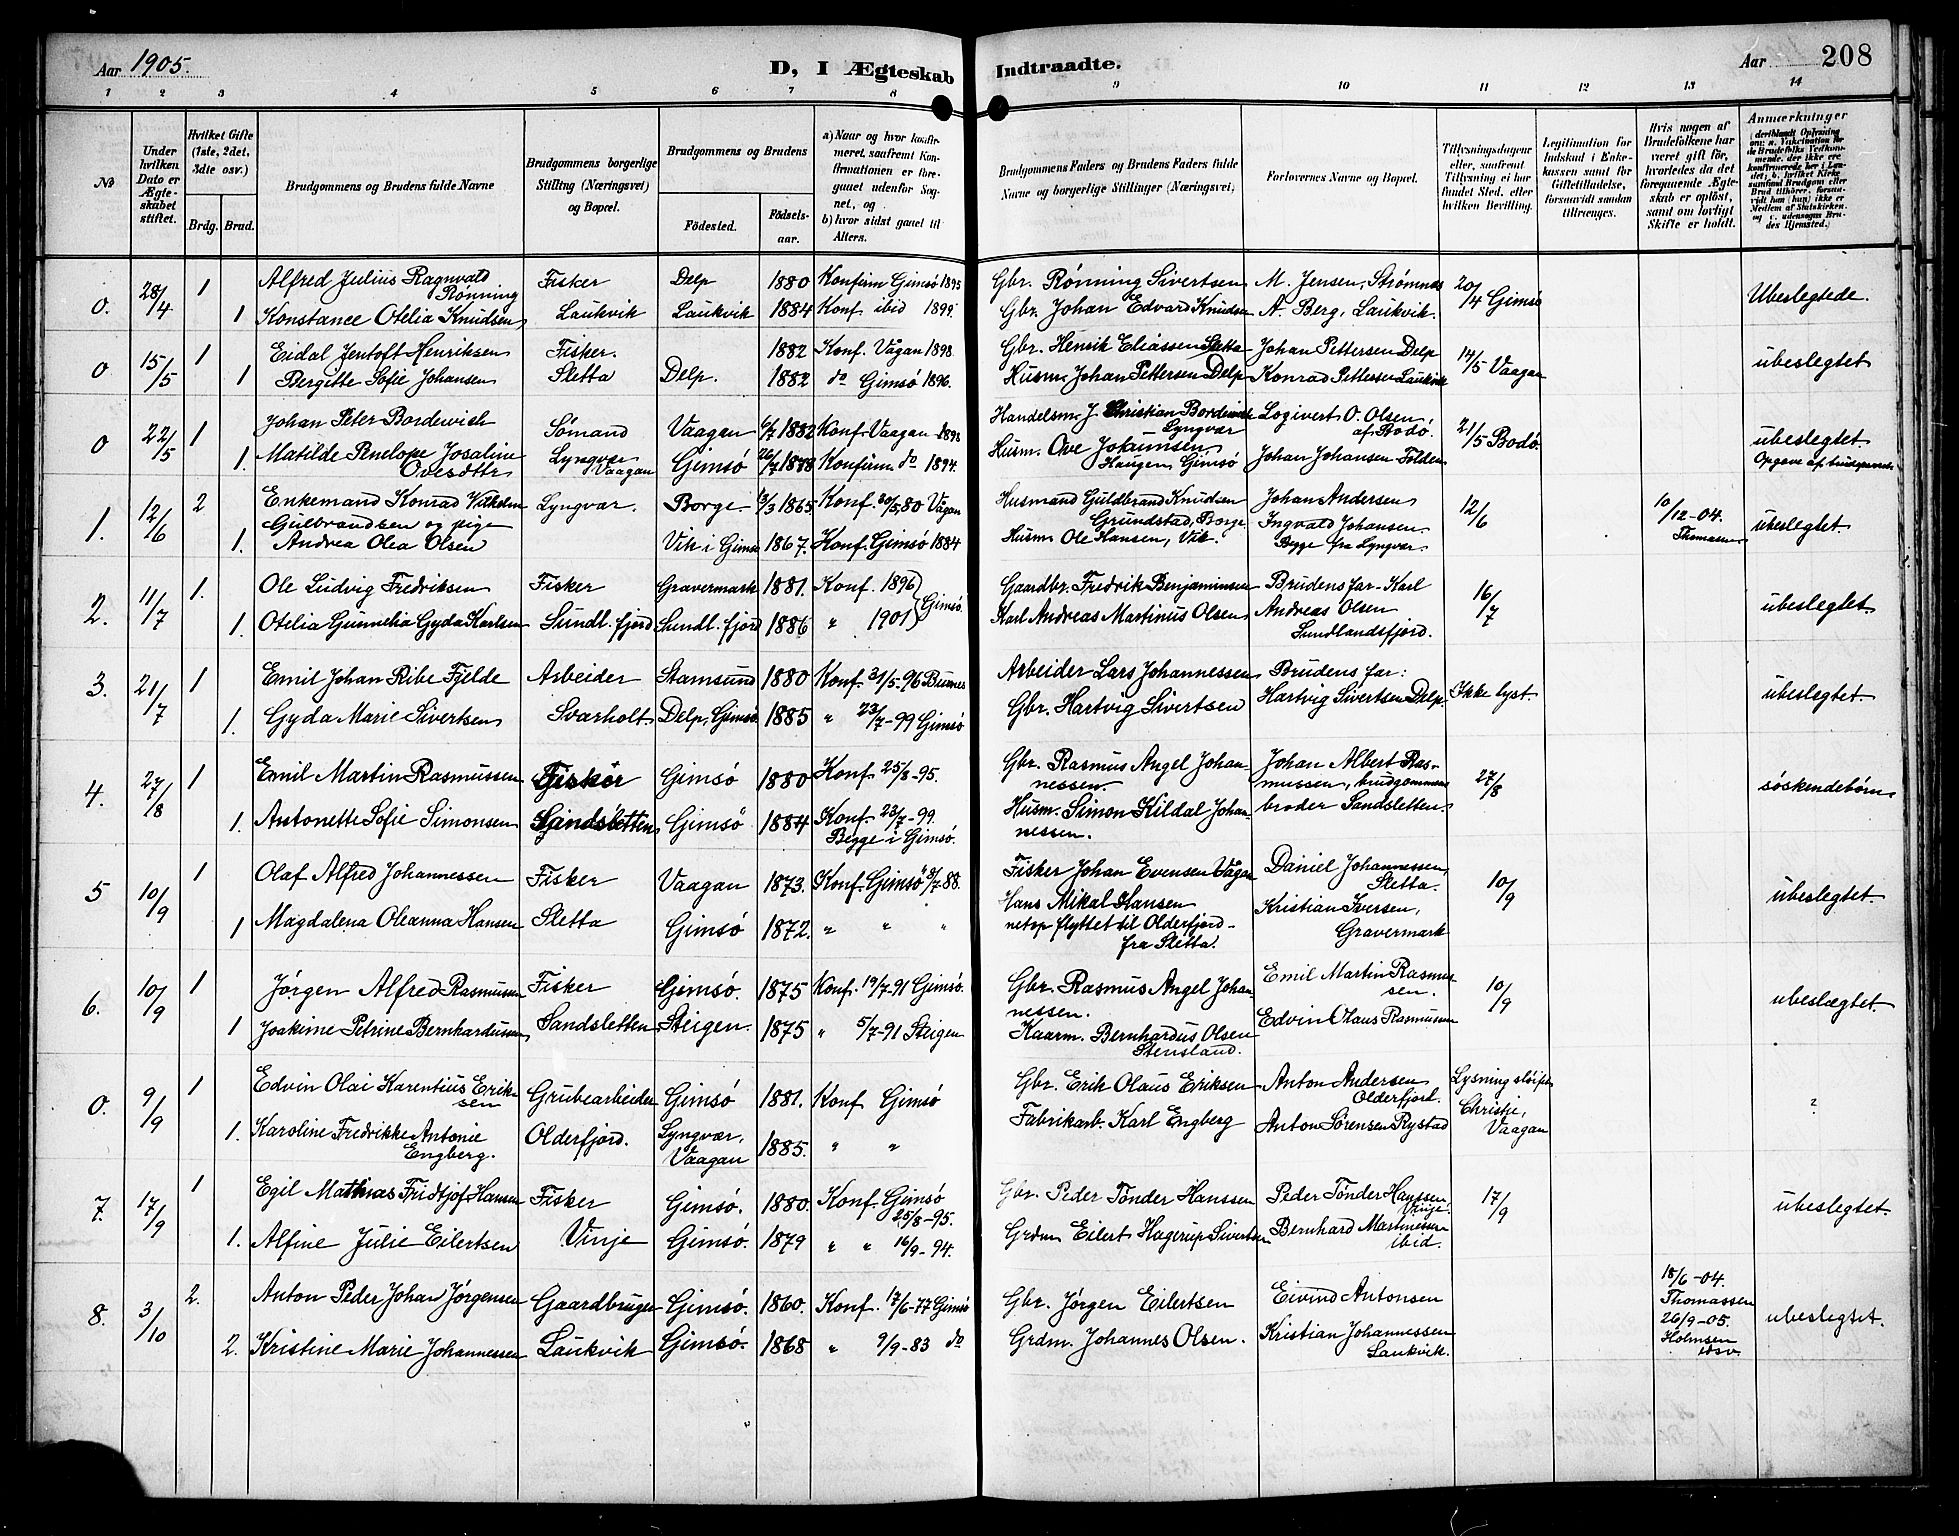 Aar 1905.
D, I Ægteskab Indtraadte.
Aar 208
1 2 3 4 5 6 7 8 9 10 11 12 13 14
No
Under hvilken Dato er Ægteskabet stiftet.
Hvilket Gifte (1ste, 2det, 3die osv.)
Brdg. Brud.
Brudgommens og Brudens fulde Navne
Brudgommens borgerlige Stilling (Næringsvei) og Bopæl.
Brudgommens og Brudens
Fødested.
Fødselsaar.
a) Naar og hvor konfirmeret, saafremt Konfirmationen er foregaaet udenfor Sognet, og
b) hvor sidst gaaet til Alters.
Brudgommens Faders og Brudens Faders fulde Navne og borgerlige Stillinger (Næringsvei)
Forlovernes Navne og Bopæl.
Tillysningsdagene eller, saafremt Tillysning ei har fundet Sted, efter hvilken Bevilling.
Legitimation for Indskud i Enkekassen samt for Giftetilladelse, forsaavidt sadan tiltrænges.
Hvis nogen af Brudefolkene har været gift før, hvorledes da det foregaaende Ægteskab er opløst, samt om lovligt Skifte er holdt.
Anmærkninger
0. 28/4 1 Alfred Julius Ragnvald Rønning Fisker Delp 1880 Konfirm Gimsø 1895 Gbr. Rønning Sivertsen M. Jensen, Strømnes 20/4 Gimsø Ubeslegtede.
1 Konstance Otelia Knudsen Laukvik Laukvik 1884 Konf ibid 1899. Gbr. Johan Edvard Knudsen A. Berg, Laukvik.
0 15/5 1 Eidal Jentoft Henriksen Fisker. 1882 Konf. Vågan 1898 Gbr. Henrik Eliassen Sletta Johan Pettersen Delp 14/5 Vaagan ubeslegtet
1 Bergitte Sofie Johansen Sletta Delp. 1882 do Gimsø 1896. Husm. Johan Pettersen Delp Konrad Pettersen Laukvik
0 22/5 1 Johan Peter Bordewich Sømand Vaagan 6/7 1882 Konf. Vaagan 1898 Handelsm. J. Christian Bordewich Lyngvær Logivert O. Olsen, af Bodø. 21/5 Bodø. ubeslegtet
1. Matilde Penelope Josaline Ovesdttr Lyngvær Vaagan Gimsø 26/7 1878 Konfirm do 1894. Husm. Ove Jokumsen Haugen, Gimsø Johan Johansen Folden Opgave af brudeparret
1. 12/6 2 Enkemand Konrad Vilhelm Gulbrandsen og pige Lyngvær. Borge 13/3 1865 Konf. 30/5,80 Vågan Husmand Guldbrand Knudsen Grundstad, Borge Johan Andersen 12/6 10/12-04. Thomassen ubeslegtet
1. Andrea Olea Olsen Vik i Gimsø 1867. Konf. Gimsø 1884 Husm. Ole Hansen, Vik. Ingvald Johansen Begge fra Lyngvær
2. 11/7 1. Ole Ludvig Fredriksen Fisker Gravermark 1881. Konf. 1896 Gimsø. Gaardbr. Fredrik Benjaminsen Brudens far - Karl Andreas Olsen Sundlandsfjord. 16/7 ubeslegtet
1. Otelia Gunnelia Gyda Karlsen Sundl. fjord Sundl. fjord 1886 " 1901 Karl Andreas Martinus Olsen
3. 21/7 1 Emil Johan Ribe Fjelde Arbeider Stamsund 1880 Konf. 31/5-96 Buxnes Arbeider Lars Johannessen Brudens far: Ikke lyst. ubeslegtet
1. Gyda Marie Sivertsen Svarholt. Delp, Gimsø 1885 " 23/7-99 Gimsø Gbr. Hartvig Sivertsen Hartvig Sivertsen Delp
4. 27/8 1 Emil Martin Rasmussen Fisker Gimsø 1880 Konf. 25/8-95. Gbr. Rasmus Angel Johannessen. Johan Albert Rasmussen, brudgommens broder Sandsletten. 27/8 søskendebørn
1. Antonette Sofie Simonsen Sandsletten Gimsø 1884 Konf. 23/7-99. Begge i Gimsø. Husm. Simon Kildal Johannessen.
5 10/9 1 Olaf Alfred Johannessen Fisker Vaagan 1873. Konf. Gimsø 8/7 88. Fisker Johan Evensen Vågan Daniel Johannessen, Sletta. 10/9 ubeslegtet.
1 Magdalena Oleanna Hansen Sletta Gimsø 1872. " " " Hans Mikal Hansen netop flyttet til Olderfjord fra Sletta. Kristian Iversen, Gravermark
6. 10/9 1 Jørgen Alfred Rasmussen Fisker Gimsø. 1875 Konf. 19/7-91 Gimsø. Gbr. Rasmus Angel Johannessen. Emil Martin Rasmussen. 10/9 ubeslægtet.
1 Joakime Petrine Bernhardussen Sandsletten Steigen. 1875 " 5/7-91 Steigen Kaarm. Bernhardus Olsen Stensland. Edvin Olaus Rasmussen
0. 9/9 1 Edvin Olai Karentius Eriksen Grubearbeider Gimsø 1881. Konf Gimsø Gbr. Erik Olaus Eriksen Anton Andersen Olderfjord. Lysning sløife ?
1. Karoline Fredrikke Antonie Engberg. Olderfjord. Lyngvær, Vaagan 1885. " " Fabrikarb. Karl Engberg Anton Sørensen Rystad Christie, Vaagan
7. 17/9 1 Egil Mathias Fridtjof Hansen Fisker Gimsø. 1880. Konf. Gimsø 25/8-95. Gbr. Peder Tønder Hanssen Peder Tønder Hanssen Vinje. 17/9 ubeslegtet.
1. Alfine Julie Eilertsen Vinje Gimsø. 1879 " " 16/9-94. Grdm Eilert Hagerup Sivertsen Bernhard Martinessen ibid.
8. 3/10 2. Anton Peder Johan Jørgensen Gaardbruger Gimsø. 1860. Konf. 17/6-77 Gimsø Gbr. Jørgen Eilertsen Eivind Antonsen 18/6-04. Thomassen ubeslegtet.
2. Kristine Marie Johannessen Laukvik Gimsø. 1868 " 9/9-83 do Grdm. Johannes Olsen. Kristian Johannessen Laukvik. 26/9-05. Holmsen